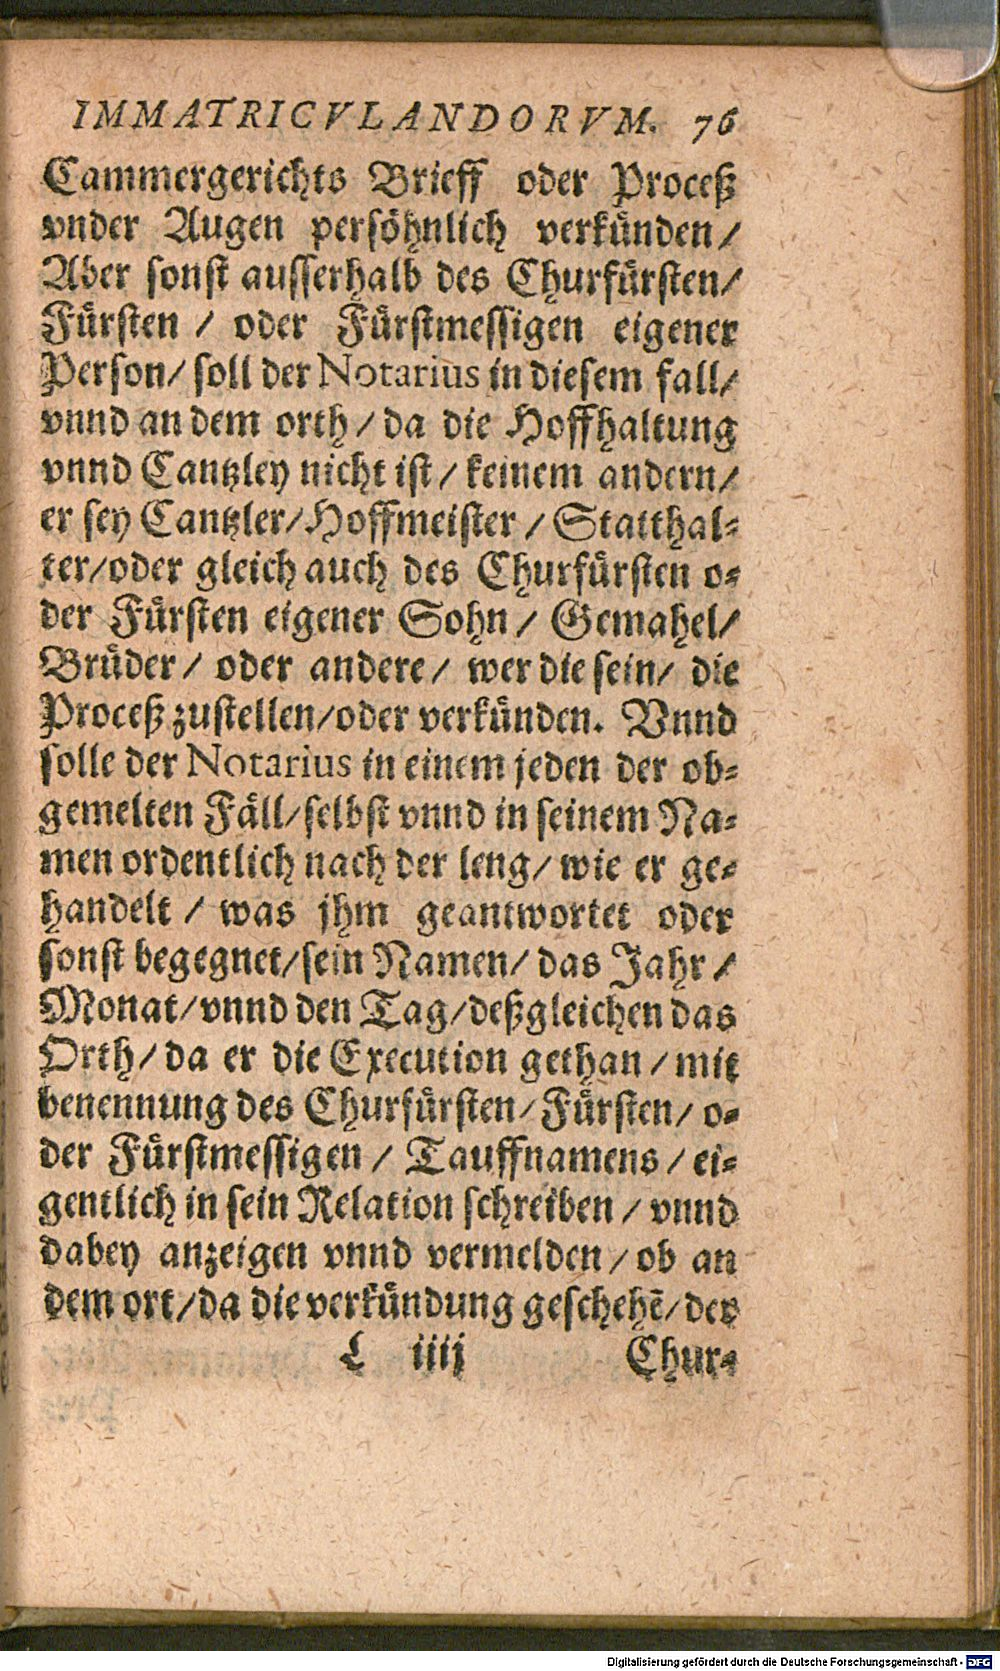 IMMATRICVLANDORVM. 76
Cammergerichts Brieff oder Proceß
vnder Augen persöhnlich verkünden/
Aber sonst ausserhalb des Churfürsten/
Fürsten / oder Fürstmessigen eigener
Person/ soll der Notarius in diesem fall/
vnnd an dem orth / da die Hoffhaltung
vnnd Cantzley nicht ist / keinem andern/
er sey Cantzler/Hoffmeister / Statthal-
ter/oder gleich auch des Churfürsten o-
der Fürsten eigener Sohn / Gemahel/
Brüder / oder andere / wer die sein/ die
Proceß zustellen/oder verkünden. Vnnd
solle der Notarius in einem jeden der ob-
gemelten Fäll/selbst vnnd in seinem Na-
men ordentlich nach der leng/ wie er ge-
handelt / was jhm geantwortet oder
sonst begegnet/sein Namen/ das Jahr /
Monat/vnnd den Tag/deßgleichen das
Orth/ da er die Execution gethan / mit
benennung des Churfürsten/Fürsten/ o-
der Fürstmessigen / Tauffnamens / ei-
gentlich in sein Relation schreiben / vnnd
dabey anzeigen vnnd vermelden / ob an
dem ort/da die verkündung geschehẽ/ der
L iiij Chur-
Digitalisierung gefördert durch die Deutsche Forschungsgemeinschaft - DFG